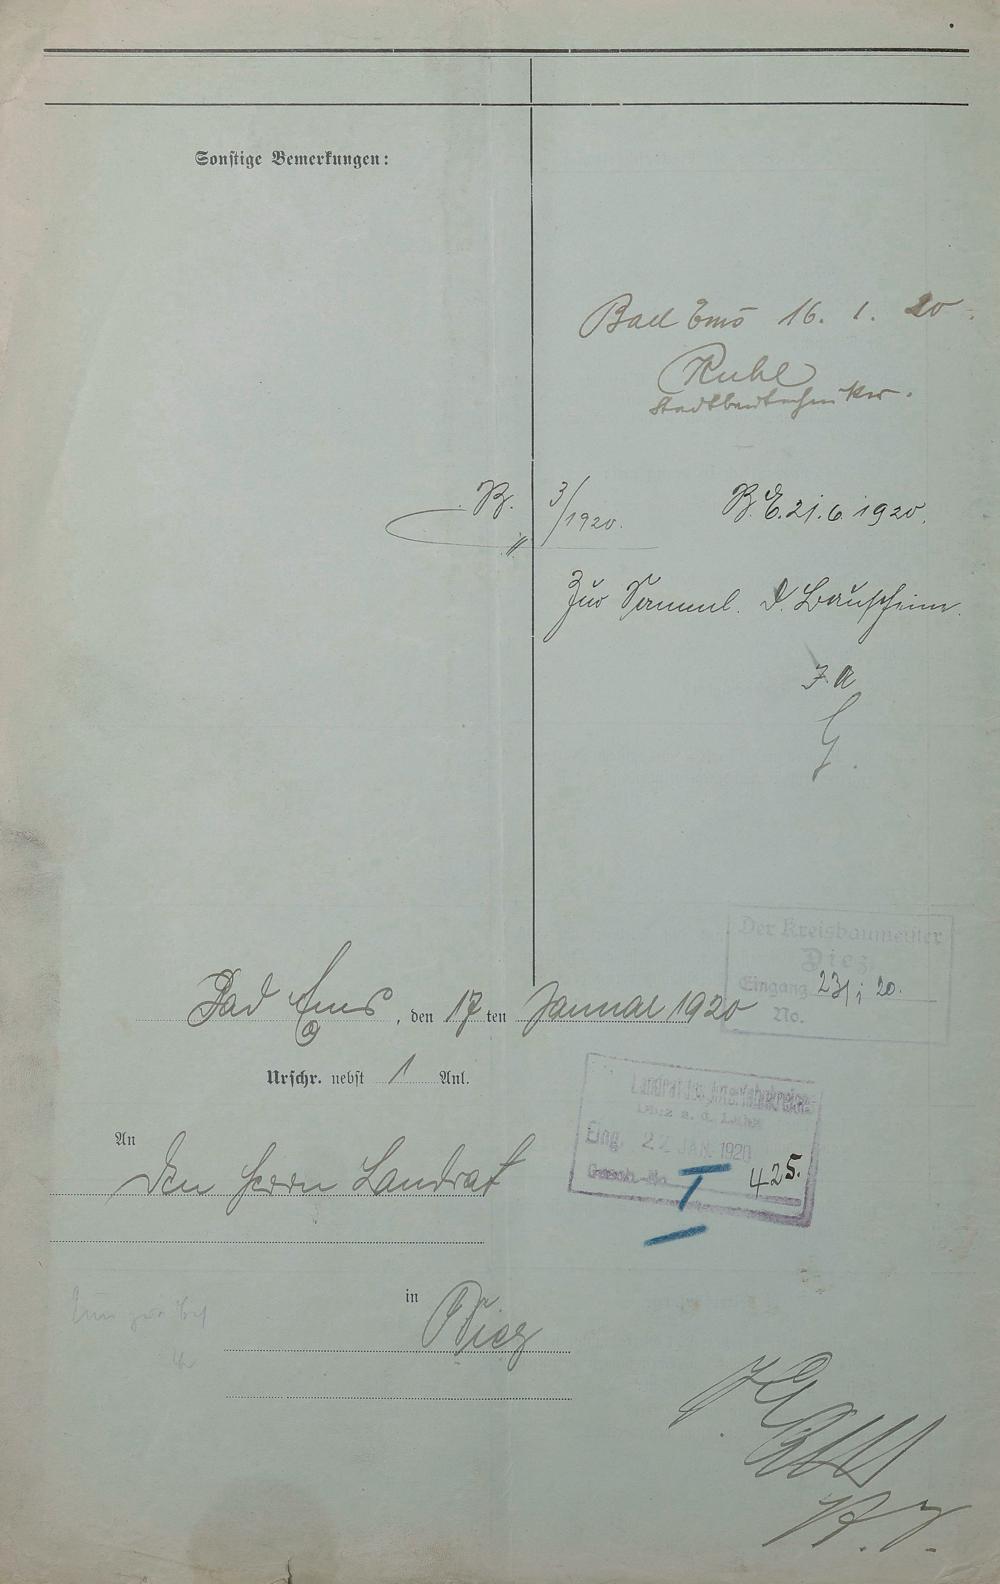 Sonstige Bemerkungen:
Bad Ems 16. 1. 20.
Ruhl
Stadtbautechniker.
B. 3/1920. B. E. 21. 6. 1920.
Zur Samml. d. Bauscheine.
J. A.
G.
Der Kreisbaumeister
Diez
Eingang 23/1 20.
No.
Bad Ems, den 17ten Januar 1920
Urschr. nebst 1 Anl.
Landrat des Unterlahnkreises
Diez a. d. Lahn
Eing. 22. JAN. 1920
Gesch.-No. 425.
I
An
den Herrn Landrat
in Diez